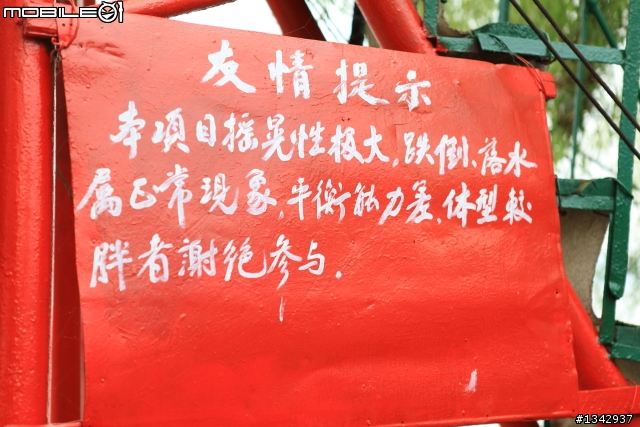 MOBILE01
友情提示
本项目摇晃性极大，跌倒、落水
属正常现象，平衡能力差，体型较
胖者谢绝参与．
#1342937